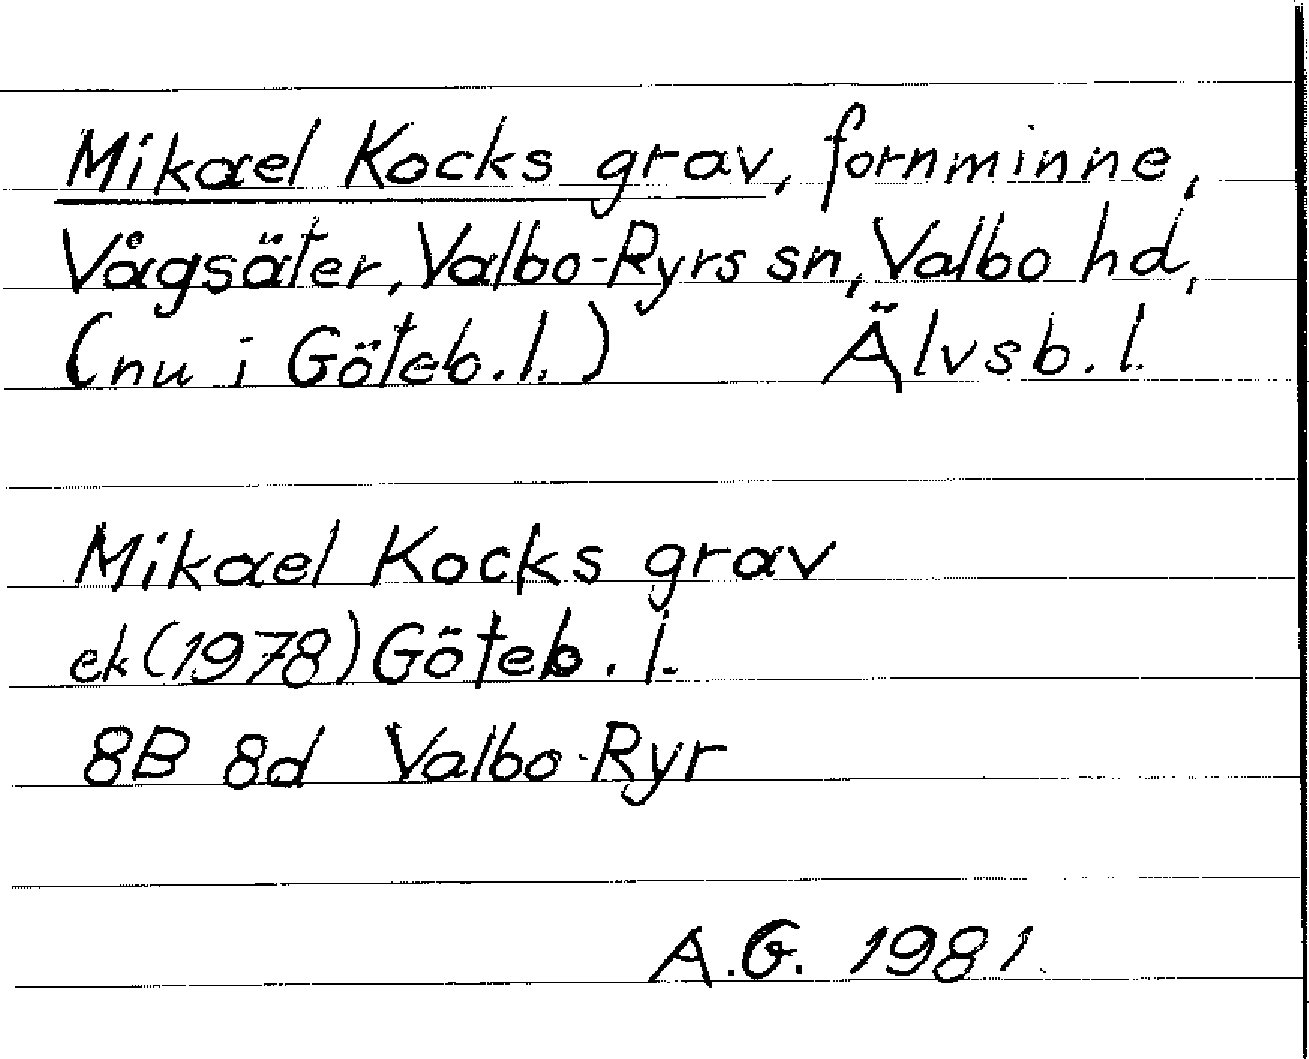 Mikael Kocks grav, fornminne,
Vågsäter, Valbo-Ryrs sn, Valbo hd,
(nu i Göteb. l.) Älvsb. l.
Mikael Kocks grav
ek (1978) Göteb. l.
8B 8d Valbo-Ryr
A.G. 1981.